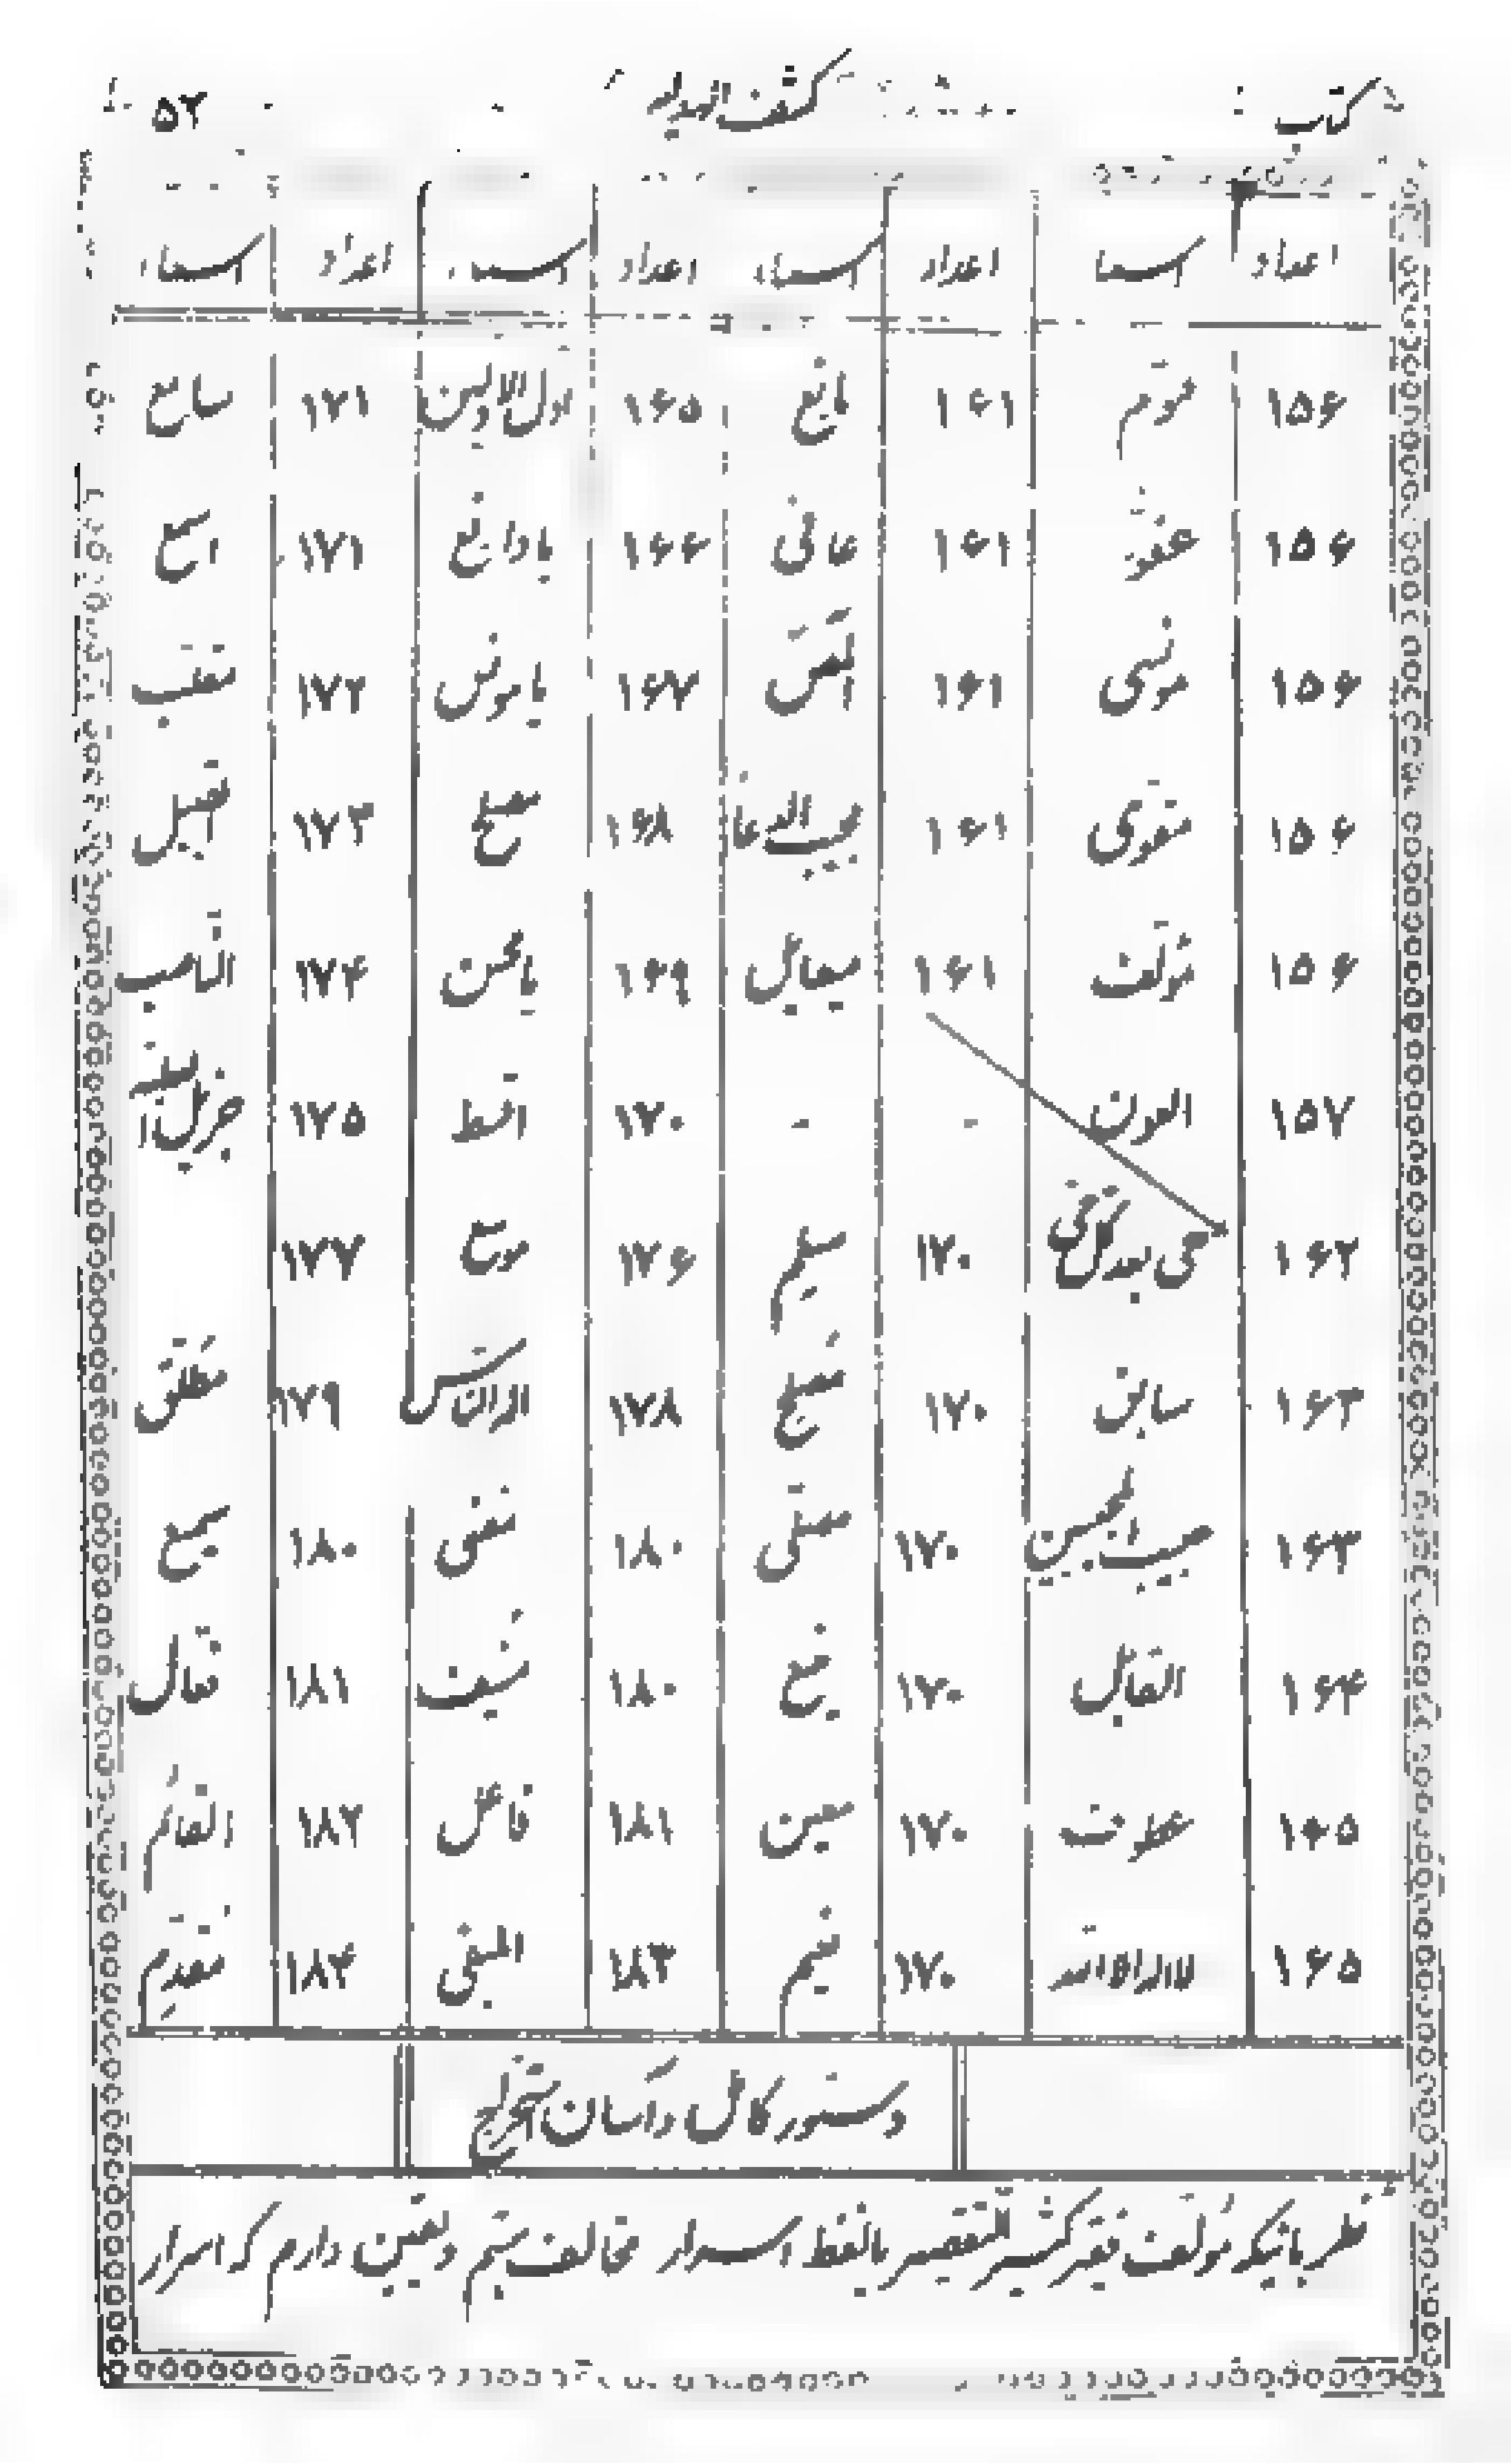 کتاب کشف الهدایه ۵۲
اعداد اسما اعداد اسماء اعداد اسماء اعداد اسماء
۱۵۶ ۱۶۱ مانع ۱۶۵ اول الاولین ۱۷۱ سامع
۱۵۶ عفو ۱۶۱ عافی ۱۶۶ یا دافع ۱۷۱
۱۵۶ مونسی ۱۶۱ ۱۶۷ یا مونس ۱۷۲
۱۵۶ مقوی ۱۶۱ مجیب الدعا ۱۶۸ مصلح ۱۷۳
۱۵۶ مولف ۱۶۱ ۱۶۹ یا محسن ۱۷۴
۱۵۷ العون - - ۱۷۰ اقسط ۱۷۵
۱۶۲ حی بعد کل حی ۱۷۰ مسلیم ۱۷۶ موسع ۱۷۷
۱۶۳ سابق ۱۷۰ مصلح ۱۷۸ ۱۷۹ مطلق
۱۶۳ حبیب المحبین ۱۷۰ معلی ۱۸۰ ۱۸۰ سمیع
۱۶۴ القابل ۱۷۰ ۱۸۰ ۱۸۱ فعال
۱۶۵ عطوف ۱۷۰ معین ۱۸۱ فاعل ۱۸۲ القائم
۱۶۵ لا اله الا الله ۱۷۰ ۱۸۳ ۱۸۴ مقدم
دستور کامل و آسان استخراج
نظر باینکه مؤلف فقیر کثیر التقصیر بالفظ اسرار مخالف هستم و یقین دارم که اسرار